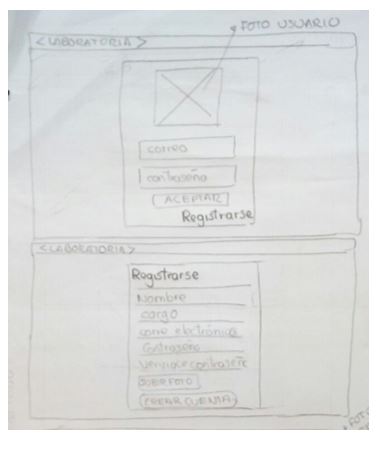 FOTO USUARIO
<LABORATORIA>
correo
contraseña
ACEPTAR
Registrarse
<LABORATORIA>
Registrarse
Nombre
cargo
correo electrónico
Contraseña
Verifique contraseñ
SUBER FOTO
CREAR CUENTA
FOTO